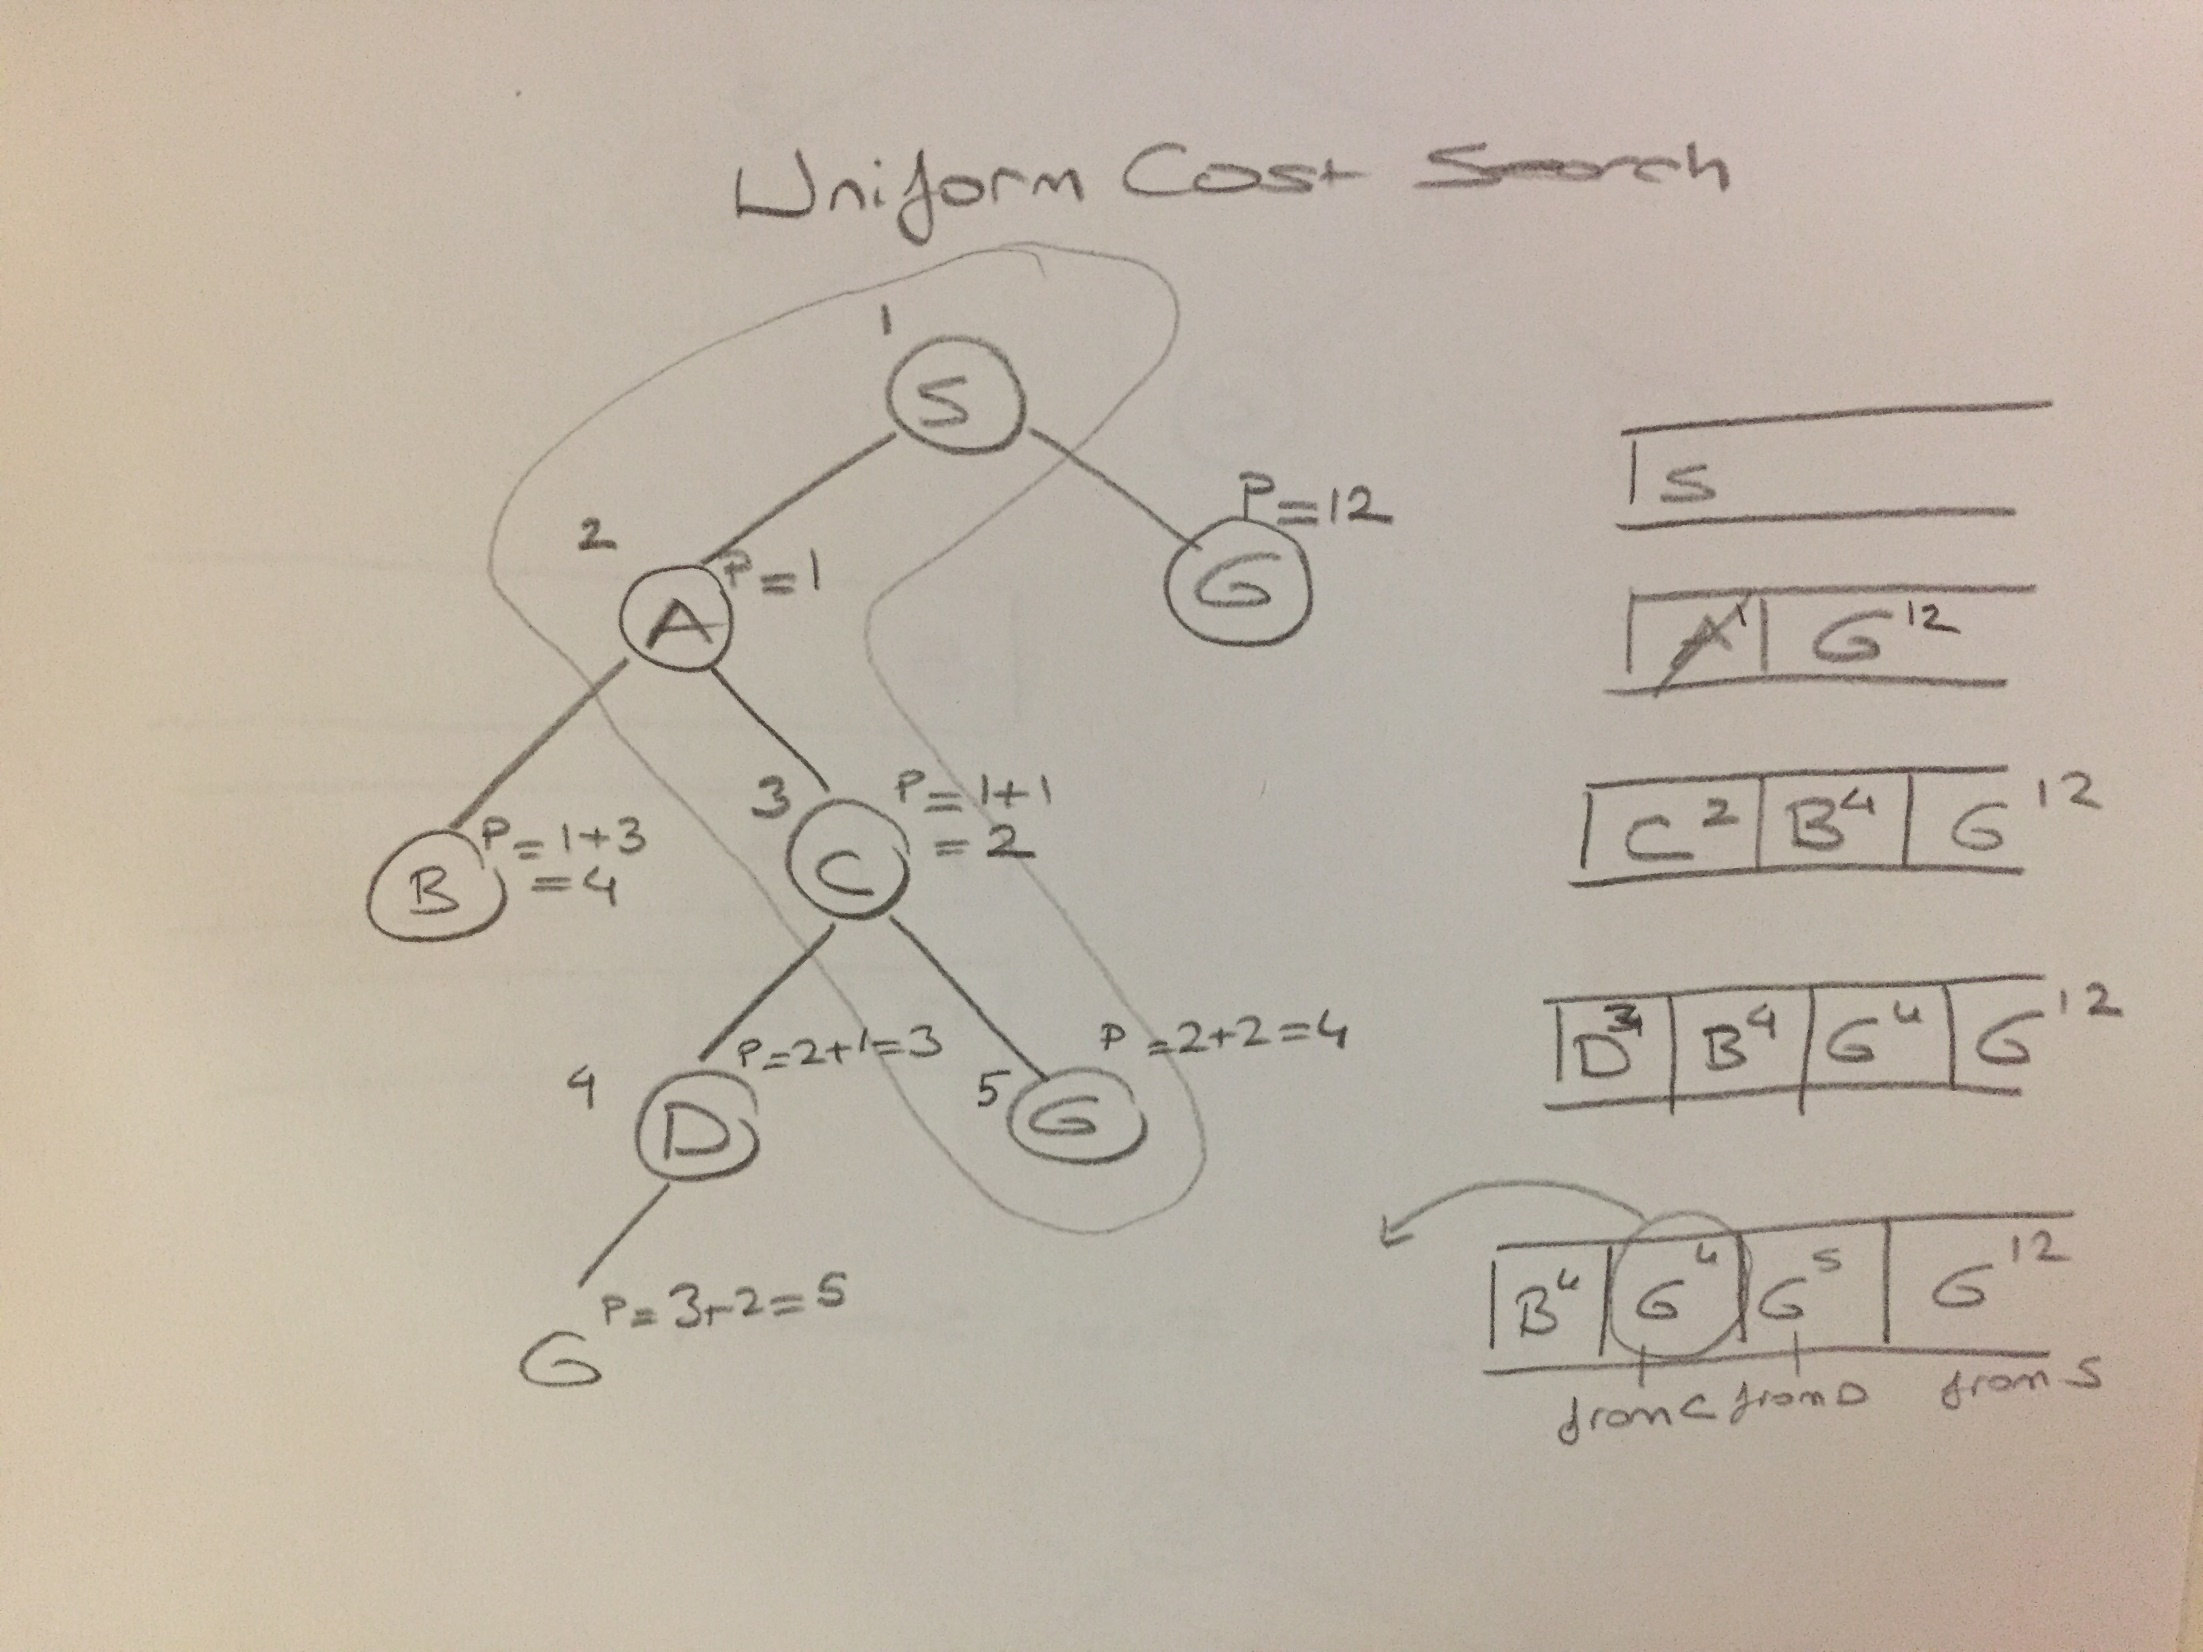 Uniform Cost Search
1
S
P=12
G
2
P=1
A
P=1+3
=4
B
3
P=1+1
=2
C
4
P=2+1=3
D
5
P=2+2=4
G
P=3+2=5
G
S
A¹ G¹²
C² B⁴ G¹²
D³ B⁴ G⁴ G¹²
B⁴ G⁴ G⁵ G¹²
from C from D from S